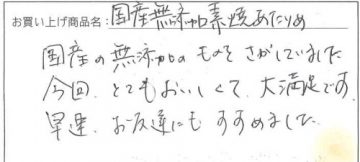 お買い上げ商品名：国産無添加素焼あたりめ
国産の無添加のものをさがしていました
今回、とてもおいしくて、大満足です。
早速、お友達にもすすめました。